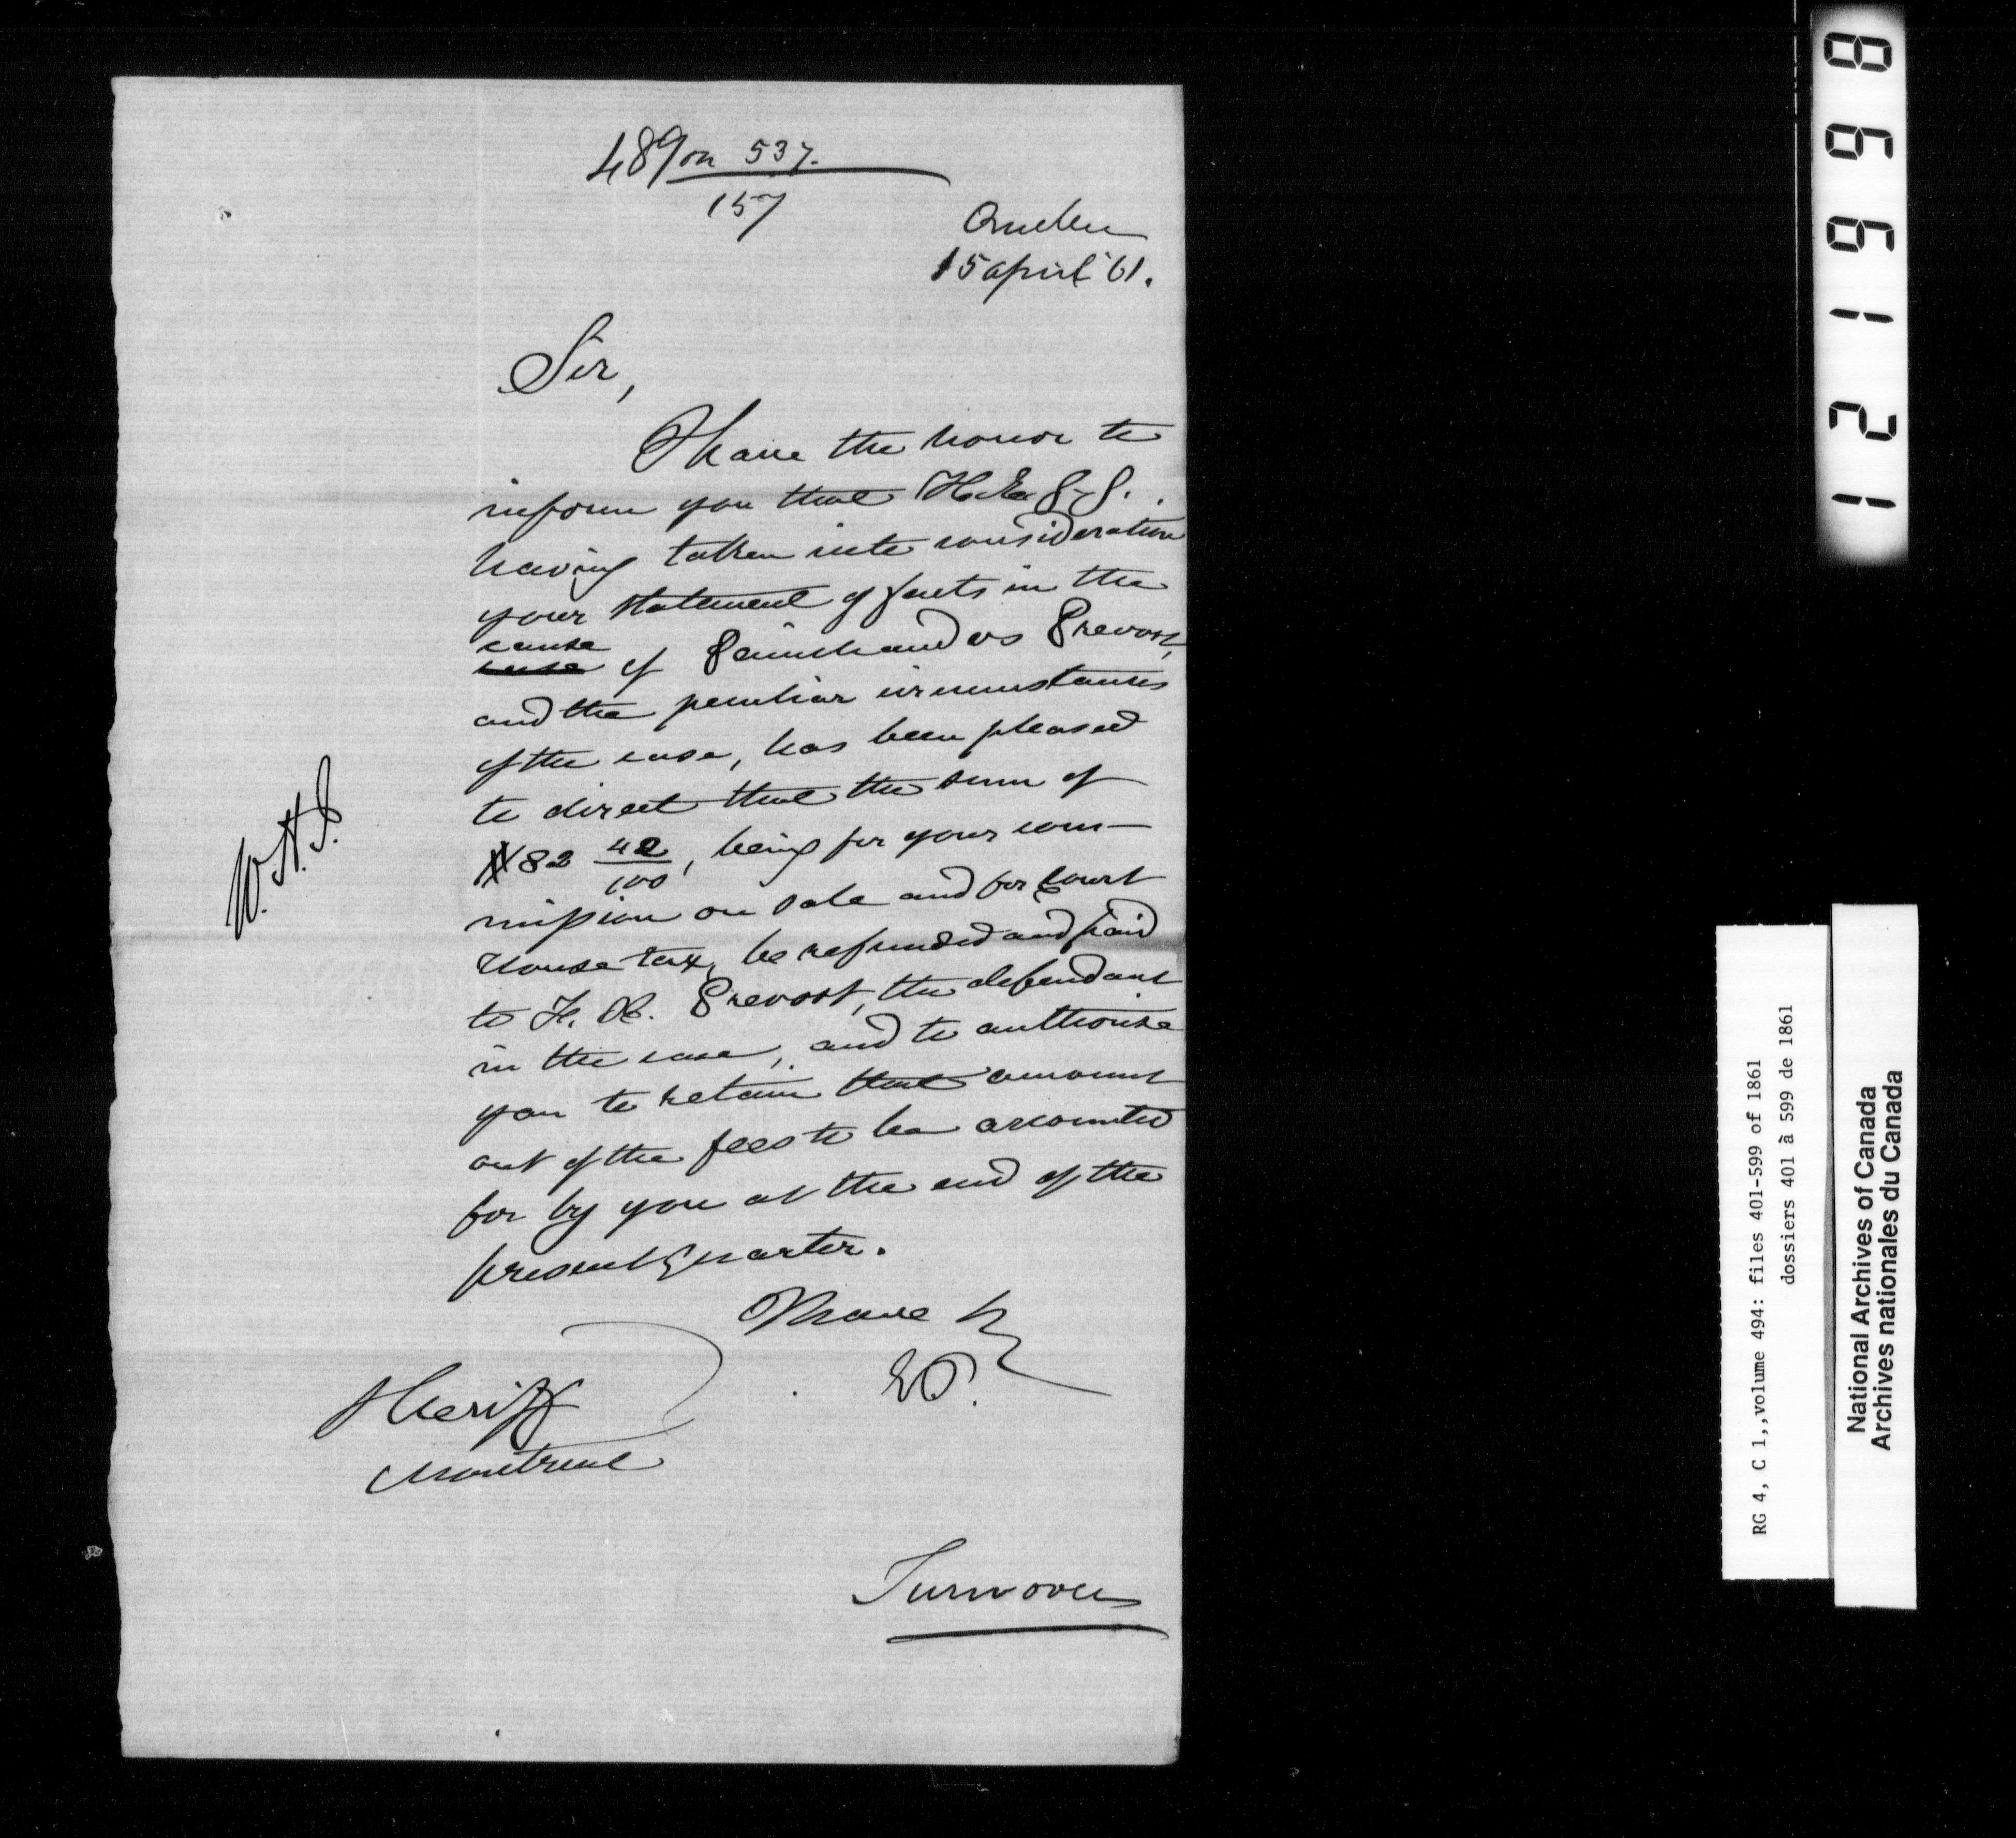 489 on 537.
157
Quebec
15 april '61.
Sir,
I have the honor to
inform you that H. Ex
having taken into consideration
your statement of facts in the
cause
case of vs Prevost,
and the peculiar circumstances
of the case, has been pleased
to direct that the sum of
$82 42/100, being for your com-
mission on sale and for Court
House tax, be refunded and paid
to Prevost, the defendant
in the case, and to authorise
you to retain that amount
out of the fees to be accounted
for by you at the end of the
present Quarter.
I have &c
Sheriff
Montreal
Turn over
W.H.J.
121998
RG 4, C 1,,volume 494: files 401-599 of 1861
dossiers 401 à 599 de 1861
National Archives of Canada
Archives nationales du Canada